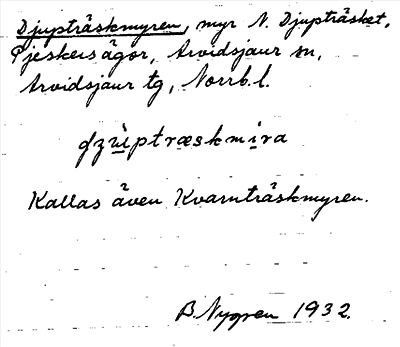 Djupträskmyren, myr N. Djupträsket,
Pjeskers ägor, Arvidsjaur sn,
Arvidsjaur tg, Norrb. l.
Kallas även Kvarnträskmyren.
B. Nygren 1932.